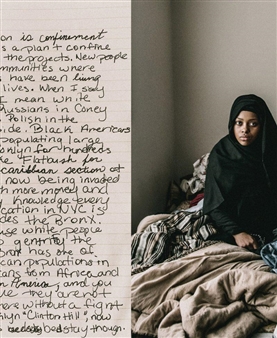 on is confinement
s a plan t confine
the projects. New people
mmunities where
s have been living
lives. When I say
I mean white
Russians in Coney
s Polish in the
side. Black Americans
populating large
ooklyn for hundreds
ke "Flatbush for
caribbean section of
now being invaded
th more money and
y Knowledge every
cation in NYC is
des the Bronx.
use white people
to gentrify the
Bronx has one of
can populations in
cans from Africa and
n America, and you
ve they are not
here without a fight
klyn "Clinton Hill", now
bedstuy though.